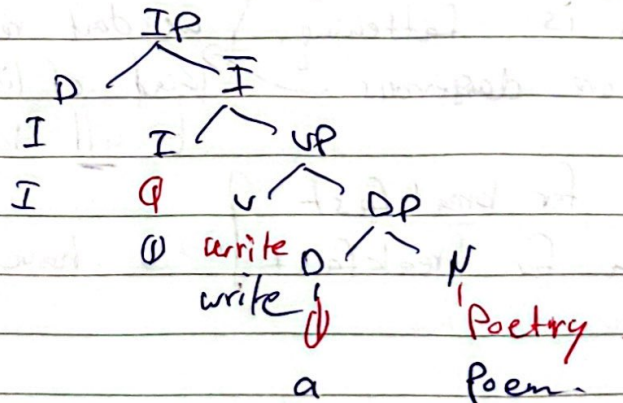 IP
D Ī
I I VP
I φ V DP
φ write D N
write φ Poetry
a Poem.